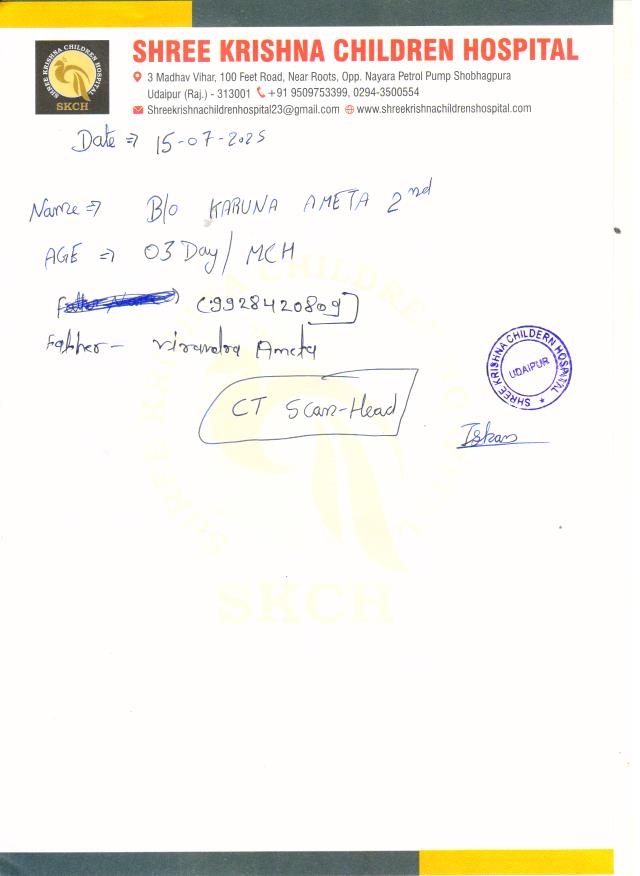 SHREE KRISHNA CHILDREN HOSPITAL
SHREE KRISHNA CHILDREN HOSPITAL
SKCH
3 Madhav Vihar, 100 Feet Road, Near Roots, Opp. Nayara Petrol Pump Shobhagpura
Udaipur (Raj.) - 313001 +91 9509753399, 0294-3500554
Shreekrishnachildrenhospital23@gmail.com www.shreekrishnachildrenshospital.com
Date ⇒ 15-07-2025
Name ⇒ B/o KARUNA AMETA 2nd
AGE ⇒ 03 Day / MCH
(9928420809)
Father - Virandra Ameta
CT Scan-Head
SHREE KRISHNA CHILDERN HOSPITAL
UDAIPUR
SHREE KRISHNA CHILDREN HOSPITAL
SKCH